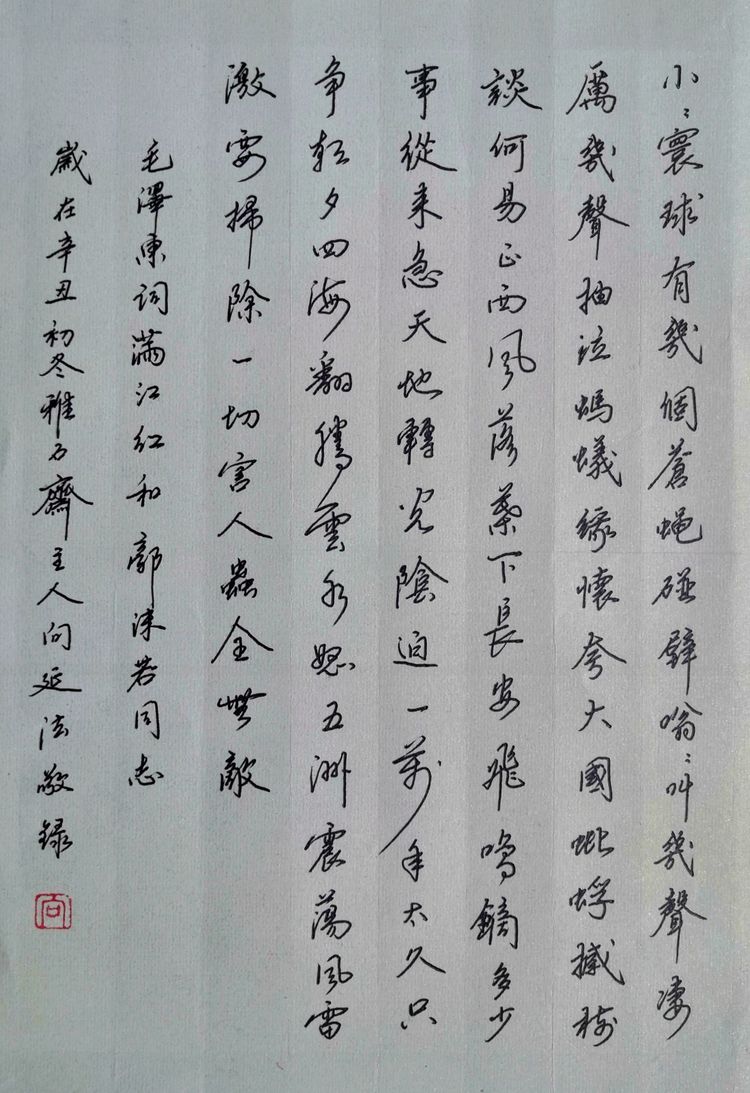 小〻寰球有幾個蒼蝇碰壁嗡〻叫幾聲凄
厲幾聲抽泣螞蟻緣懷夸大國蚍蜉撼樹
談何易正西風落葉下長安飛鳴鏑多少
事從来急天地轉光陰迫一萬年太久只
争朝夕四海翻騰雲水怒五洲震蕩風雷
激要掃除一切害人蟲全無敵
毛澤東詞滿江紅和郭沫若同志
歲在辛丑初冬雅石齋主人向延法敬録
向